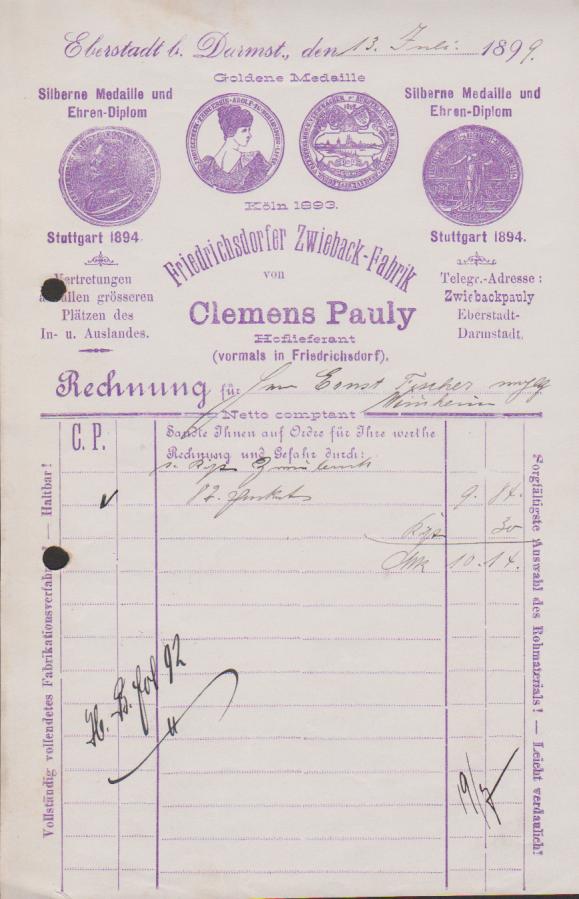 Eberstadt b. Darmst., den 13. Juli. 1899.
Goldene Medaille
Silberne Medaille und
Ehren-Diplom
Silberne Medaille und
Ehren-Diplom
Köln 1893.
Stuttgart 1894.
Stuttgart 1894.
Friedrichsdorfer Zwieback-Fabrik
von
Clemens Pauly
Hoflieferant
(vormals in Friedrichsdorf).
Vertretungen
an allen grösseren
Plätzen des
In- u. Auslandes.
Telegr.-Adresse:
Zwiebackpauly
Eberstadt-
Darmstadt.
Rechnung für Herrn Ernst Fischer
Netto comptant
C. P.
Sandte Ihnen auf Ordre für Ihre werthe
Rechnung und Gefahr durch:
82. 9. 84.
30
10. 14.
Vollständig vollendetes Fabrikationsverfahren! — Haltbar!
Sorgfältigste Auswahl des Rohmaterials! — Leicht verdaulich!
fol 92
19/7